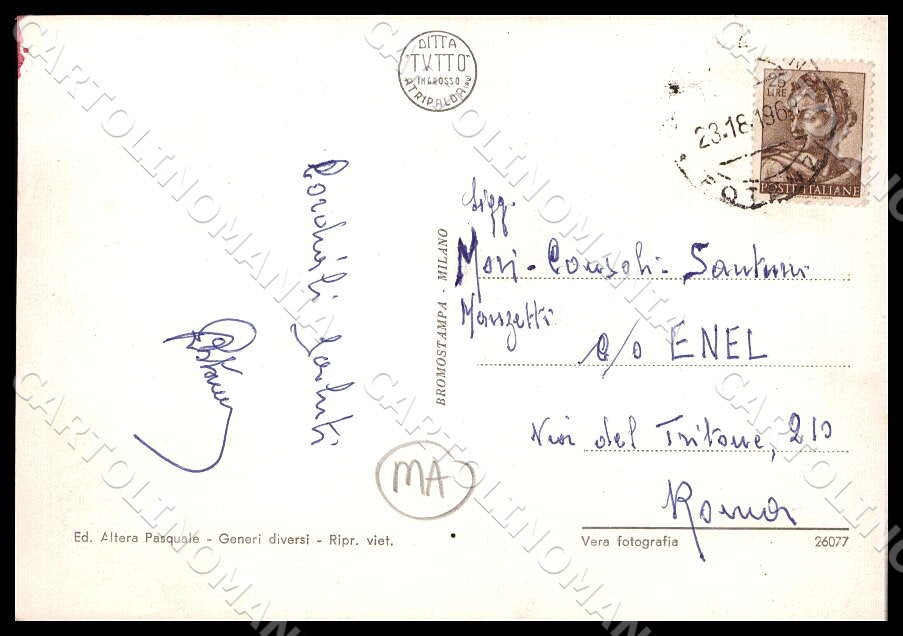 DITTA
"TUTTO"
INGROSSO
ATRIPALDA (AV)
25
LIRE
23.18.196
POSTE ITALIANE
Cordiali Saluti
BROMOSTAMPA - MILANO
Sigg.
Mori - Consoli - Santini
Manzetti
c/o ENEL
Via del Tritone, 210
Roma
MA
Ed. Altera Pasquale - Generi diversi - Ripr. viet.
Vera fotografia
26077
CARTOLINOMANIA